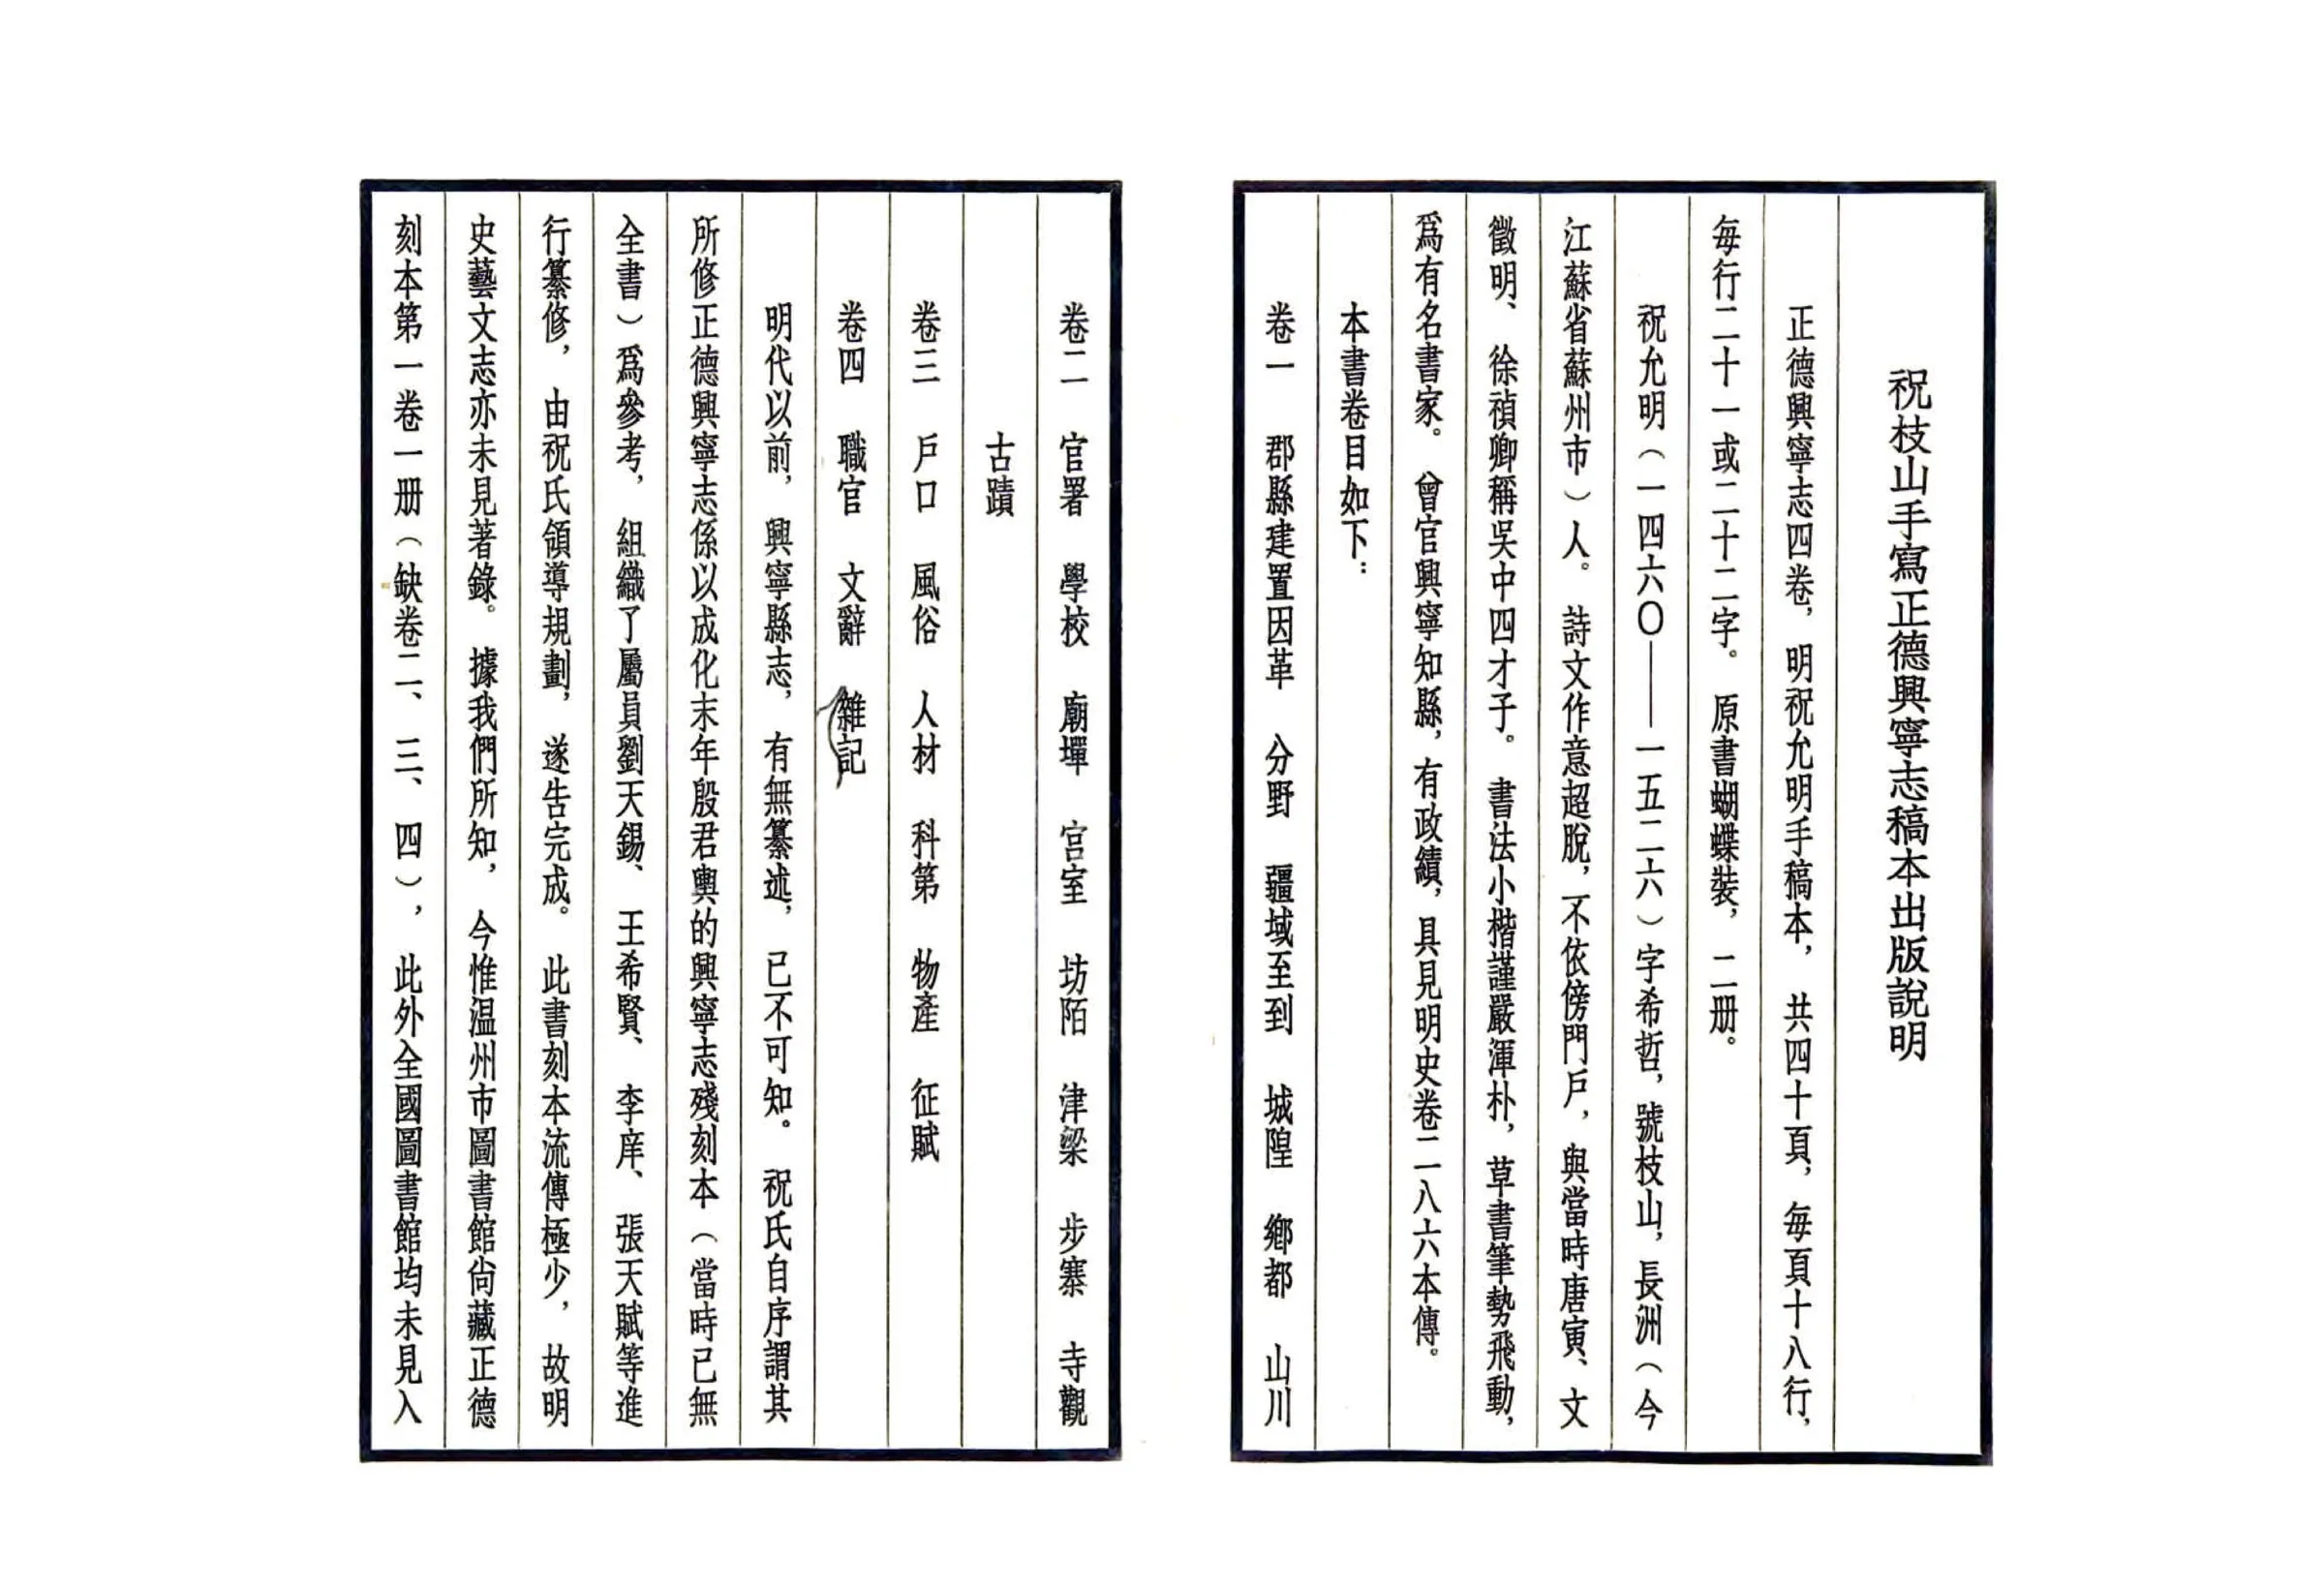 祝枝山手寫正德興寧志稿本出版說明
正德興寧志四卷，明祝允明手稿本，共四十頁，每頁十八行，
每行二十一或二十二字。原書蝴蝶裝，二册。
祝允明（一四六〇——一五二六）字希哲，號枝山，長洲（今
江蘇省蘇州市）人。詩文作意超脫，不依傍門戶，與當時唐寅、文
徵明、徐禎卿稱吳中四才子。書法小楷謹嚴渾朴，草書筆勢飛動，
爲有名書家。曾官興寧知縣，有政績，具見明史卷二八六本傳。
本書卷目如下：
卷一　郡縣建置因革　分野　疆域至到　城隍　鄉都　山川
卷二　官署　學校　廟墠　宫室　坊陌　津梁　步寨　寺觀
古蹟
卷三　戶口　風俗　人材　科第　物產　征賦
卷四　職官　文辭　雜記
明代以前，興寧縣志，有無纂述，已不可知。祝氏自序謂其
所修正德興寧志係以成化末年殷君輿的興寧志殘刻本（當時已無
全書）爲參考，組織了屬員劉天錫、王希賢、李庠、張天賦等進
行纂修，由祝氏領導規劃，遂告完成。此書刻本流傳極少，故明
史藝文志亦未見著錄。據我們所知，今惟温州市圖書館尚藏正德
刻本第一卷一册（缺卷二、三、四），此外全國圖書館均未見入